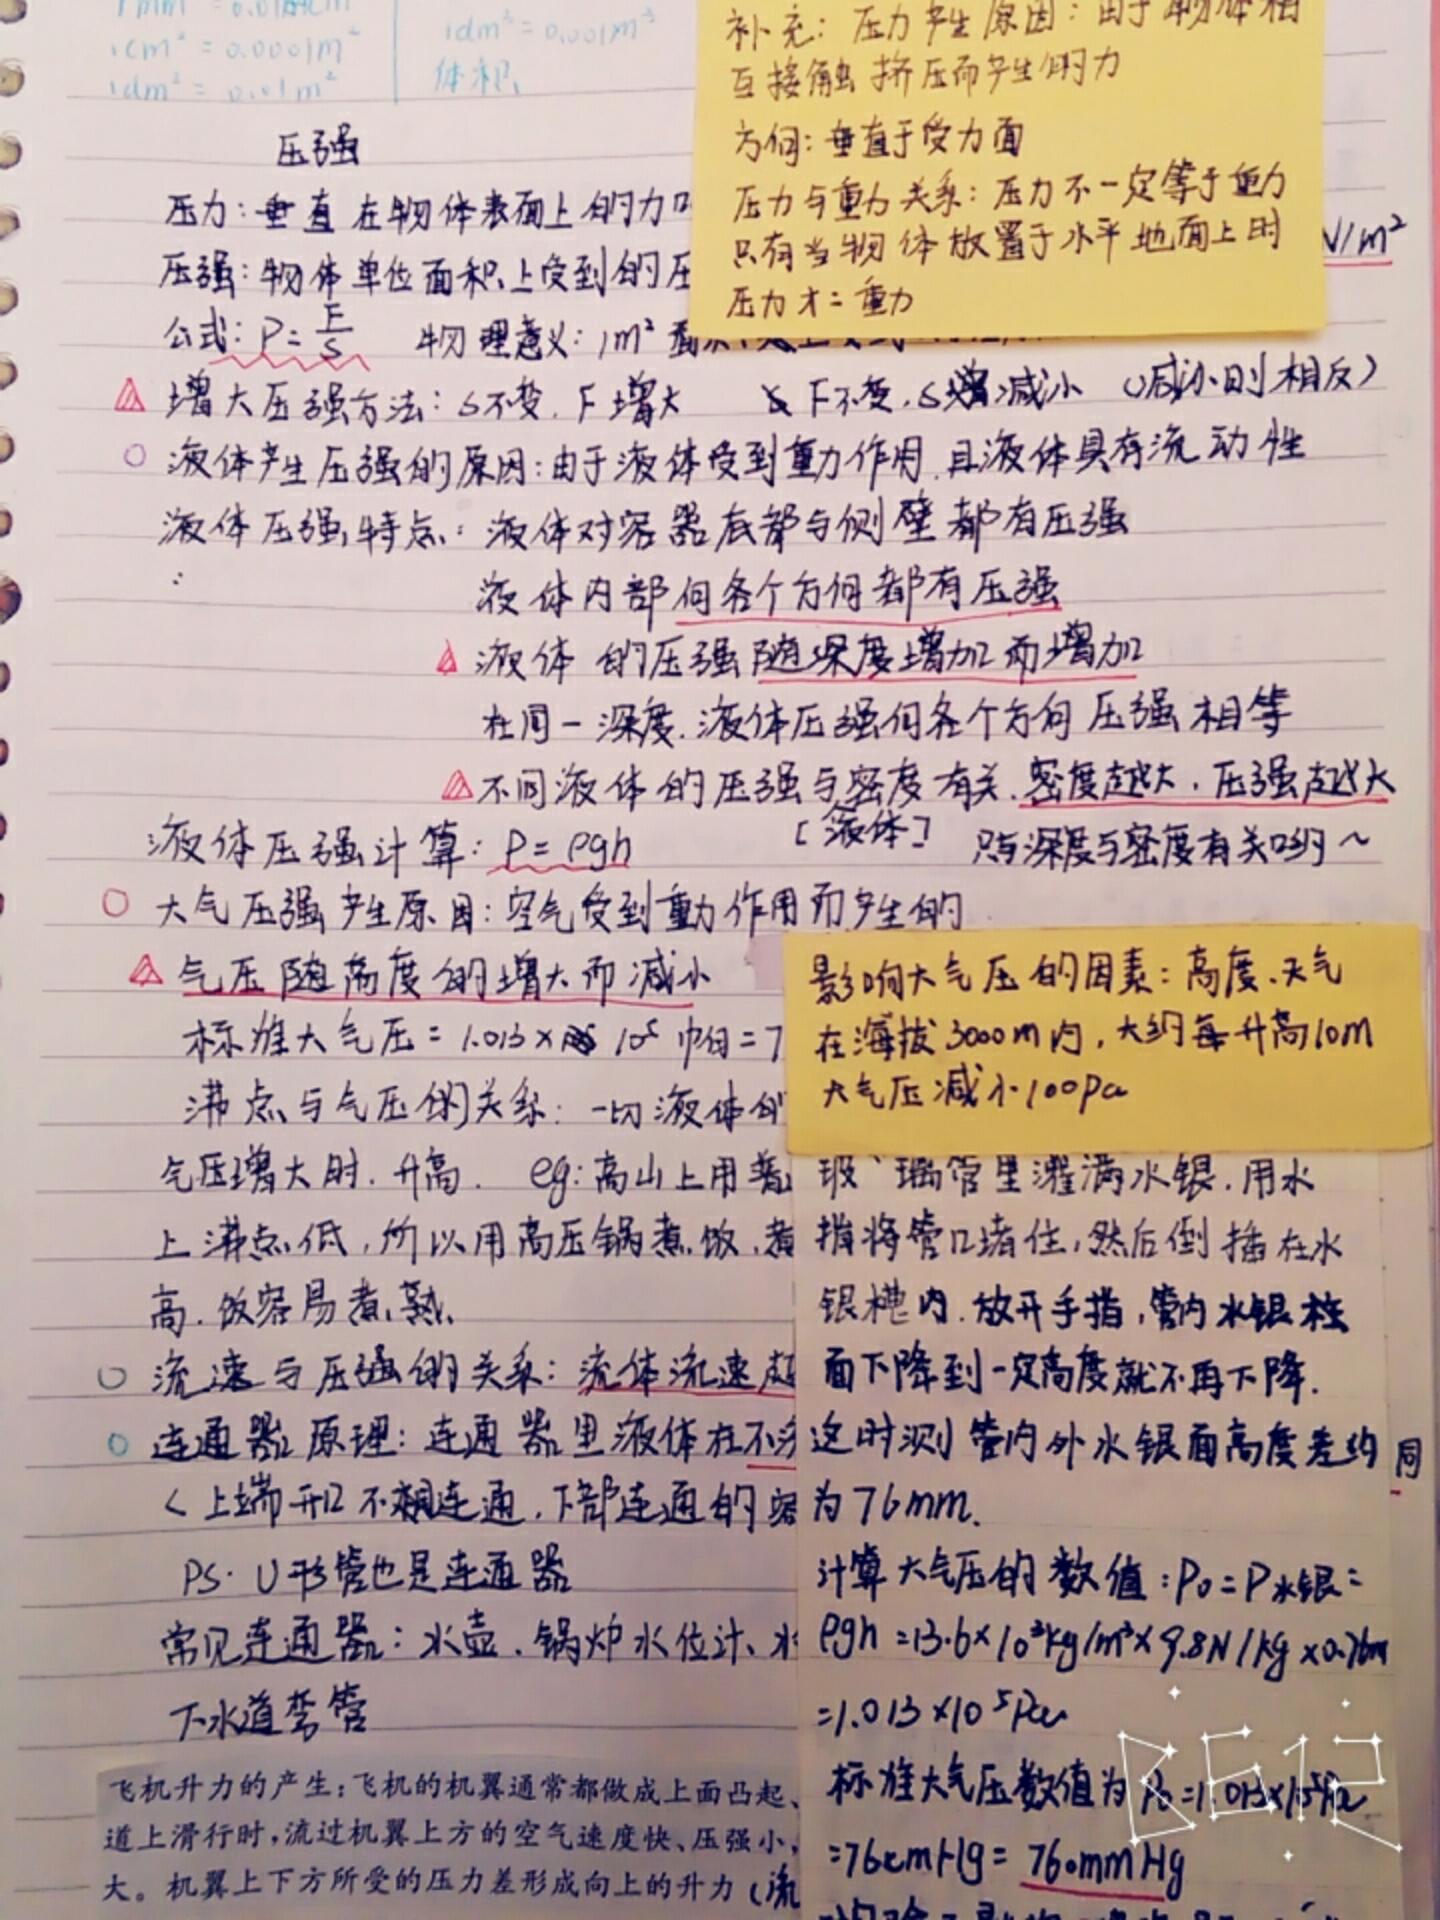 1cm² = 0.0001m²
1dm² = 0.01m²
1dm³ = 0.001m³
体积
补充: 压力产生原因: 由于物体相
互接触挤压而产生的力
方向: 垂直于受力面
压力与重力关系: 压力不一定等于重力
只有当物体放置于水平地面上时
压力才=重力
压强
压力: 垂直在物体表面上的力叫
压强: 物体单位面积上受到的压
N/m²
公式: P=F/S 物理意义: 1m²
增大压强方法: S不变. F增大 F不变. S减小 (减小则相反)
液体产生压强的原因: 由于液体受到重力作用 且液体具有流动性
液体压强特点: 液体对容器底部与侧壁都有压强
液体内部向各个方向都有压强
液体的压强随深度增加而增加
在同一深度. 液体压强向各个方向压强相等
不同液体的压强与密度有关. 密度越大. 压强越大
液体压强计算: P=ρgh [液体] 只与深度与密度有关哟~
大气压强产生原因: 空气受到重力作用而产生的
气压随高度的增大而减小
标准大气压=1.013×10⁵帕=7
沸点与气压的关系: 一切液体的
气压增大时. 升高. eg: 高山上用普
上沸点低, 所以用高压锅煮饭. 煮
高. 饭容易煮熟.
流速与压强的关系: 流体流速越
连通器原理: 连通器里液体在不流
同
<上端开口不相连通. 下部连通的容
PS. U形管也是连通器
常见连通器: 水壶. 锅炉水位计、水
下水道弯管
影响大气压的因素: 高度.天气
在海拔3000m内, 大约每升高10m
大气压减小100Pa
玻璃管里灌满水银. 用水
指将管口堵住, 然后倒插在水
银槽内. 放开手指, 管内水银柱
面下降到一定高度就不再下降.
这时测管内外水银面高度差约
为76mm.
计算大气压的数值: P0=P水银=
ρgh =13.6×10³kg/m³×9.8N/kg×0.76m
=1.013×10⁵Pa
标准大气压数值为 P0=1.013×10⁵Pa
=76cmHg= 760mmHg
飞机升力的产生: 飞机的机翼通常都做成上面凸起、
道上滑行时, 流过机翼上方的空气速度快、压强小,
大。机翼上下方所受的压力差形成向上的升力 (流